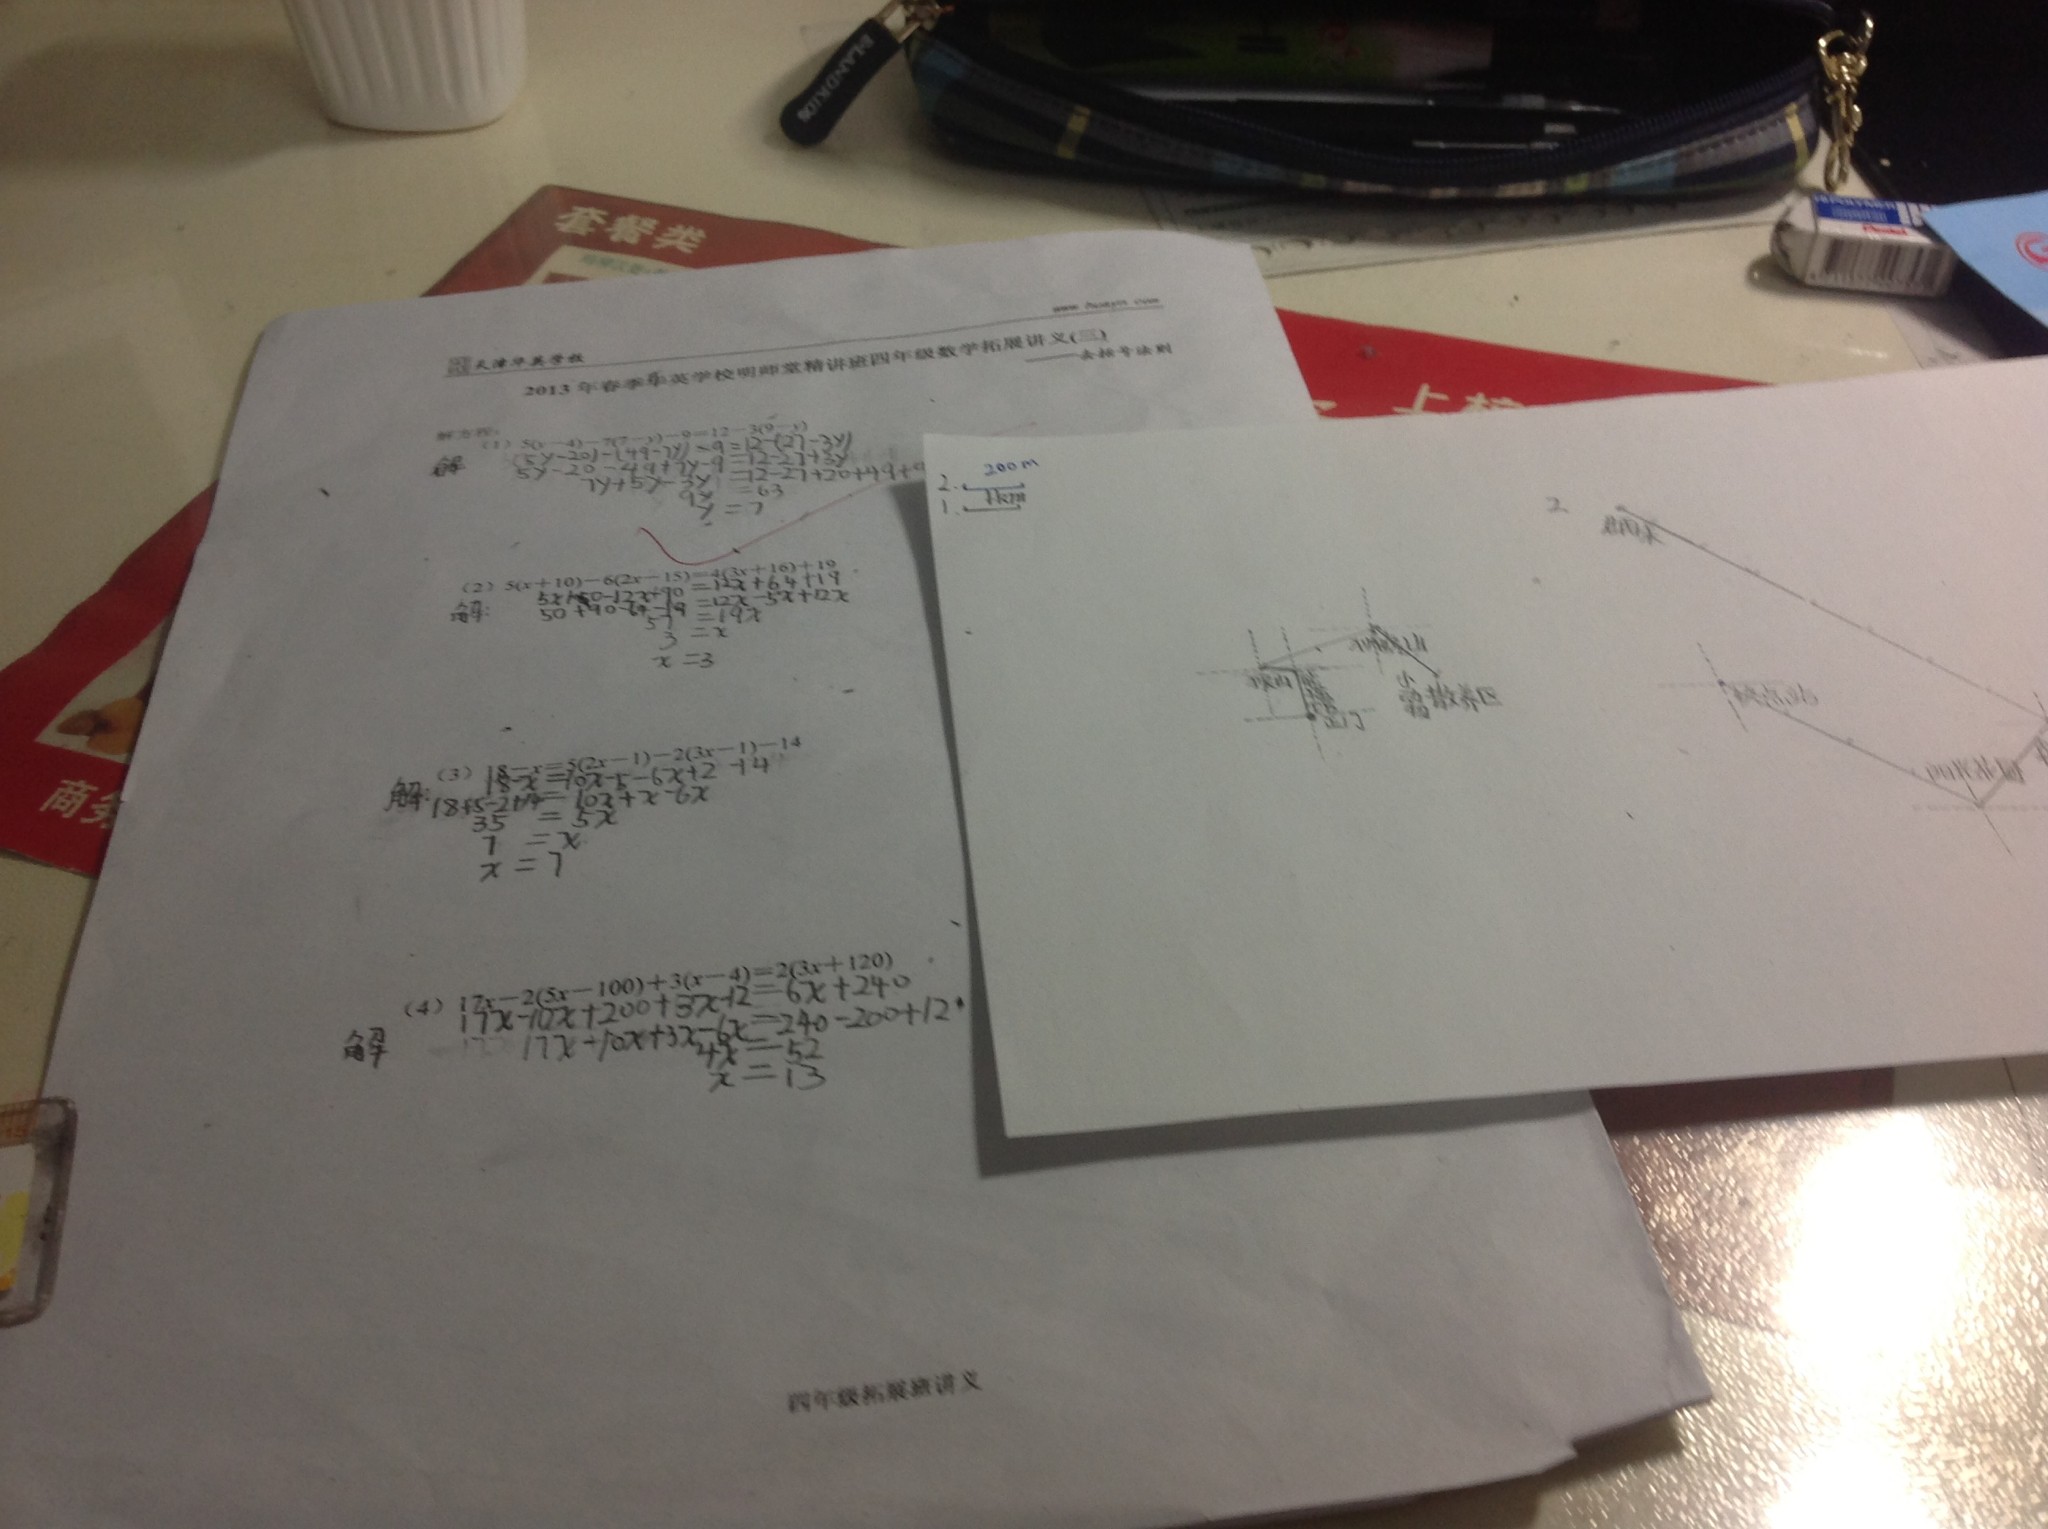 PLANDKIDS
套餐类
www.huayit.com
天津华英学校
2013年春季华英学校明师堂精讲班四年级数学拓展讲义(三)
——去括号法则
解方程:
(1) 5(y-4)-7(7-y)-9=12-3(9-y)
解 (5y-20)-(49-7y)-9=12-(27-3y)
5y-20-49+7y-9=12-27+3y
7y+5y-3y=12-27+20+49+9
9y=63
y=7
(2) 5(x+10)-6(2x-15)=4(3x+16)+19
解: 5x+50-12x+90=12x+64+19
50+90-64-19=12x-5x+12x
57=19x
3=x
x=3
(3) 18-x=5(2x-1)-2(3x-1)-14
解: 18-x=10x-5-6x+2-14
18+5-2+14=10x+x-6x
35=5x
7=x
x=7
(4) 17x-2(5x-100)+3(x-4)=2(3x+120)
解 17x-10x+200+3x-12=6x+240
17x-10x+3x-6x=240-200+12
4x=52
x=13
四年级拓展班讲义
2. 200m
1. 1km
2.
猴山
出门
小
散养区
商务